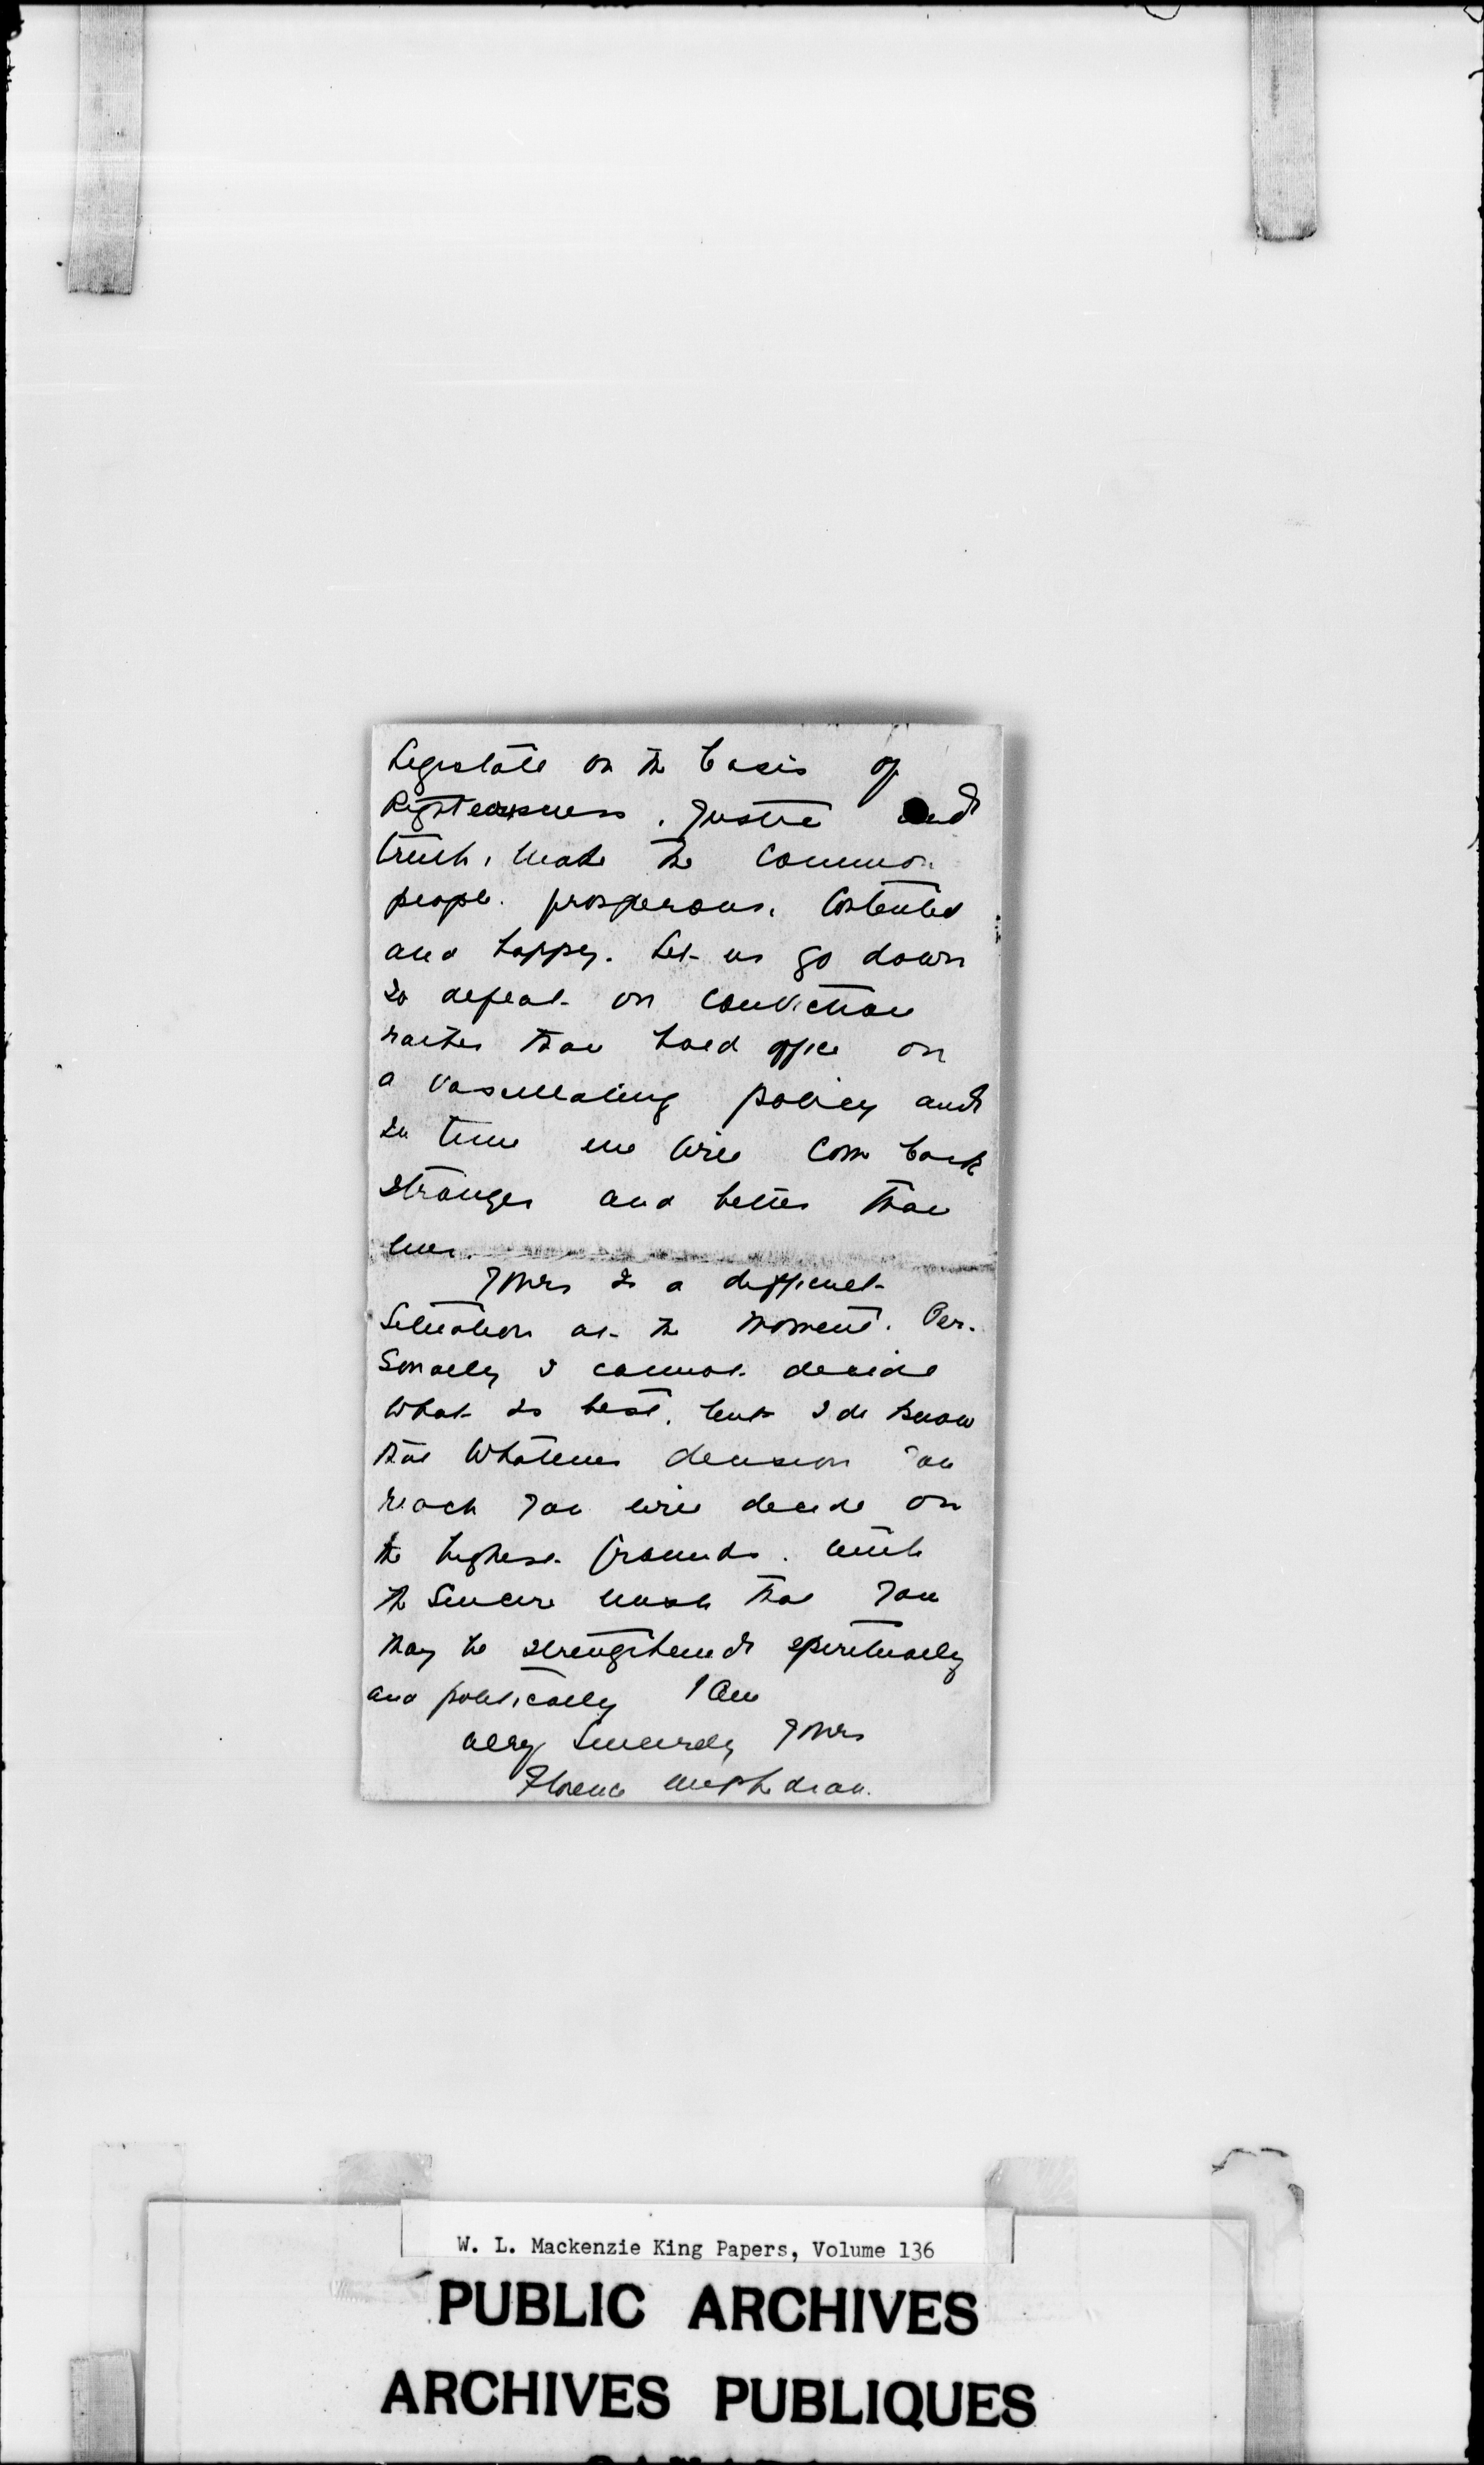 Legislate on the basis of
Righteousness, Justice and
truth, make the common
people prosperous, contented
and happy. Let us go down
to defeat on conviction
rather than hold office on
a vascillating policy and
in time we will come back
stronger and better than
ever.
Yours is a difficult
situation at the moment. Per-
sonally I cannot decide
what is best, but I do know
that whatever decision you
reach you will decide on
the highest grounds. With
the sincere wish that you
may be strengthened spiritually
and politically I am
Very Sincerely Yours
Florence
W. L. Mackenzie King Papers, Volume 136
PUBLIC ARCHIVES
ARCHIVES PUBLIQUES